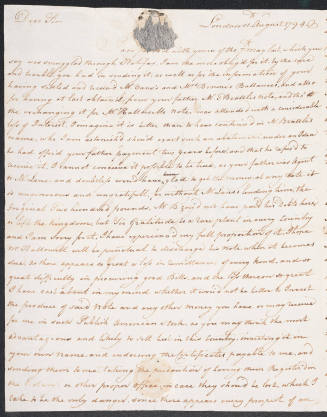 Dear Sir
London 1st August 1794
I am favored with yours of the 7 May last, which you
say was smuggled through Halifax, I am the more obliged for it, by the care
and trouble you had in sending it, as well as for the information of your
having settled and received Mr Cane's and Mr Bonner's Balances, and also
for having at last obtained from your father Mr Bradley's Note, and
the exchanging it for Mr Hathorne's Note, was attended with a considerable
who I am astonished should exact such an abatement under an Idea
he had of your father payment long had and that he refused to
receive it, I cannot conceive it possible to be had, as your father was Agent
to Mr Lane and doubly employed, to get the money at any rate, it
is uncommon and ungrateful, as without Mr Lane's lending him the
Original Two hundred pounds, Mr B could not have paid his debts here
or left the Kingdom, but Sir Gratitude is a rare plant in every Country
and I am sorry for it, I have experienced my full proportion of it, I hope
Mr Hathorne will be punctual to discharge his note when it becomes
due, as there is so great a loss in remittances of every kind, and so
great difficulty in procuring good Bills, and the Exchange so great
I have cast about in my mind whether it would not be better to Invest
the produce of said Note and any other money you have or may receive
for me in such Publick American Stock as you may think the most
advantageous and likely to sell best in this Country, investing it in
your own name, and indorsing the Certificates payable to me, and
sending them to me, taking the precaution of having them Registered in
the or other proper office, in case they should be lost, which I
take to be the only danger, since there appears every prospect of our